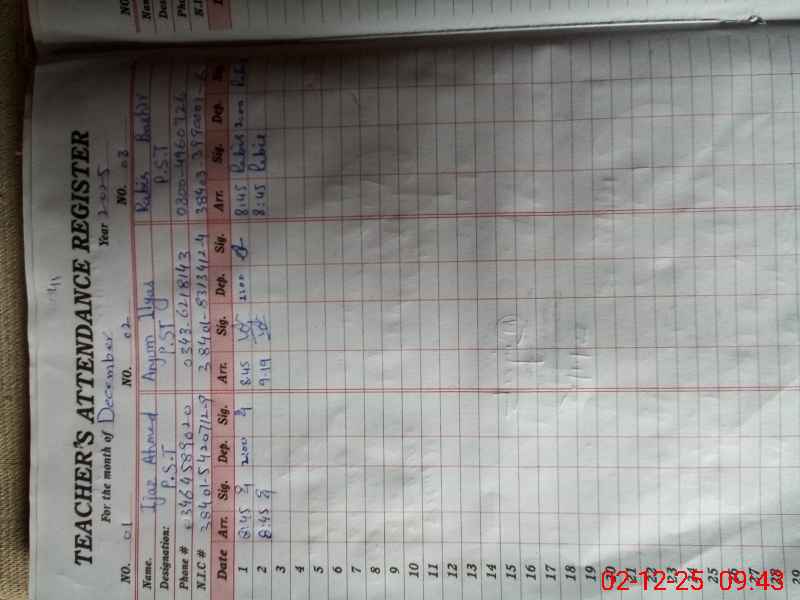 TEACHER'S ATTENDANCE REGISTER
For the month of December Year 2025
NO. 01 NO. 02 NO. 03
Name. Ijaz Ahmed Anjum Ilyas Rabia Bashir
Designation: P.S.T P.S.T P.S.T
Phone # 03464589020 0343-6218143 0300-4960326
N.I.C # 38401-5420712-9 38401-8313412-4 38403
Date Arr. Sig. Dep. Sig. Arr. Sig. Dep. Sig. Arr. Sig. Dep.
1 8:45 2:00 8:45 2:00 8:45 Rabia 2:00 Rabia
2 8:45 9:19 8:45 Rabia
3
4
5
6
7
8
9
10
11
12
13
14
15
16
17
18
19
20
21
22
23
24
25
26
27
28
29
02-12-25 09:43